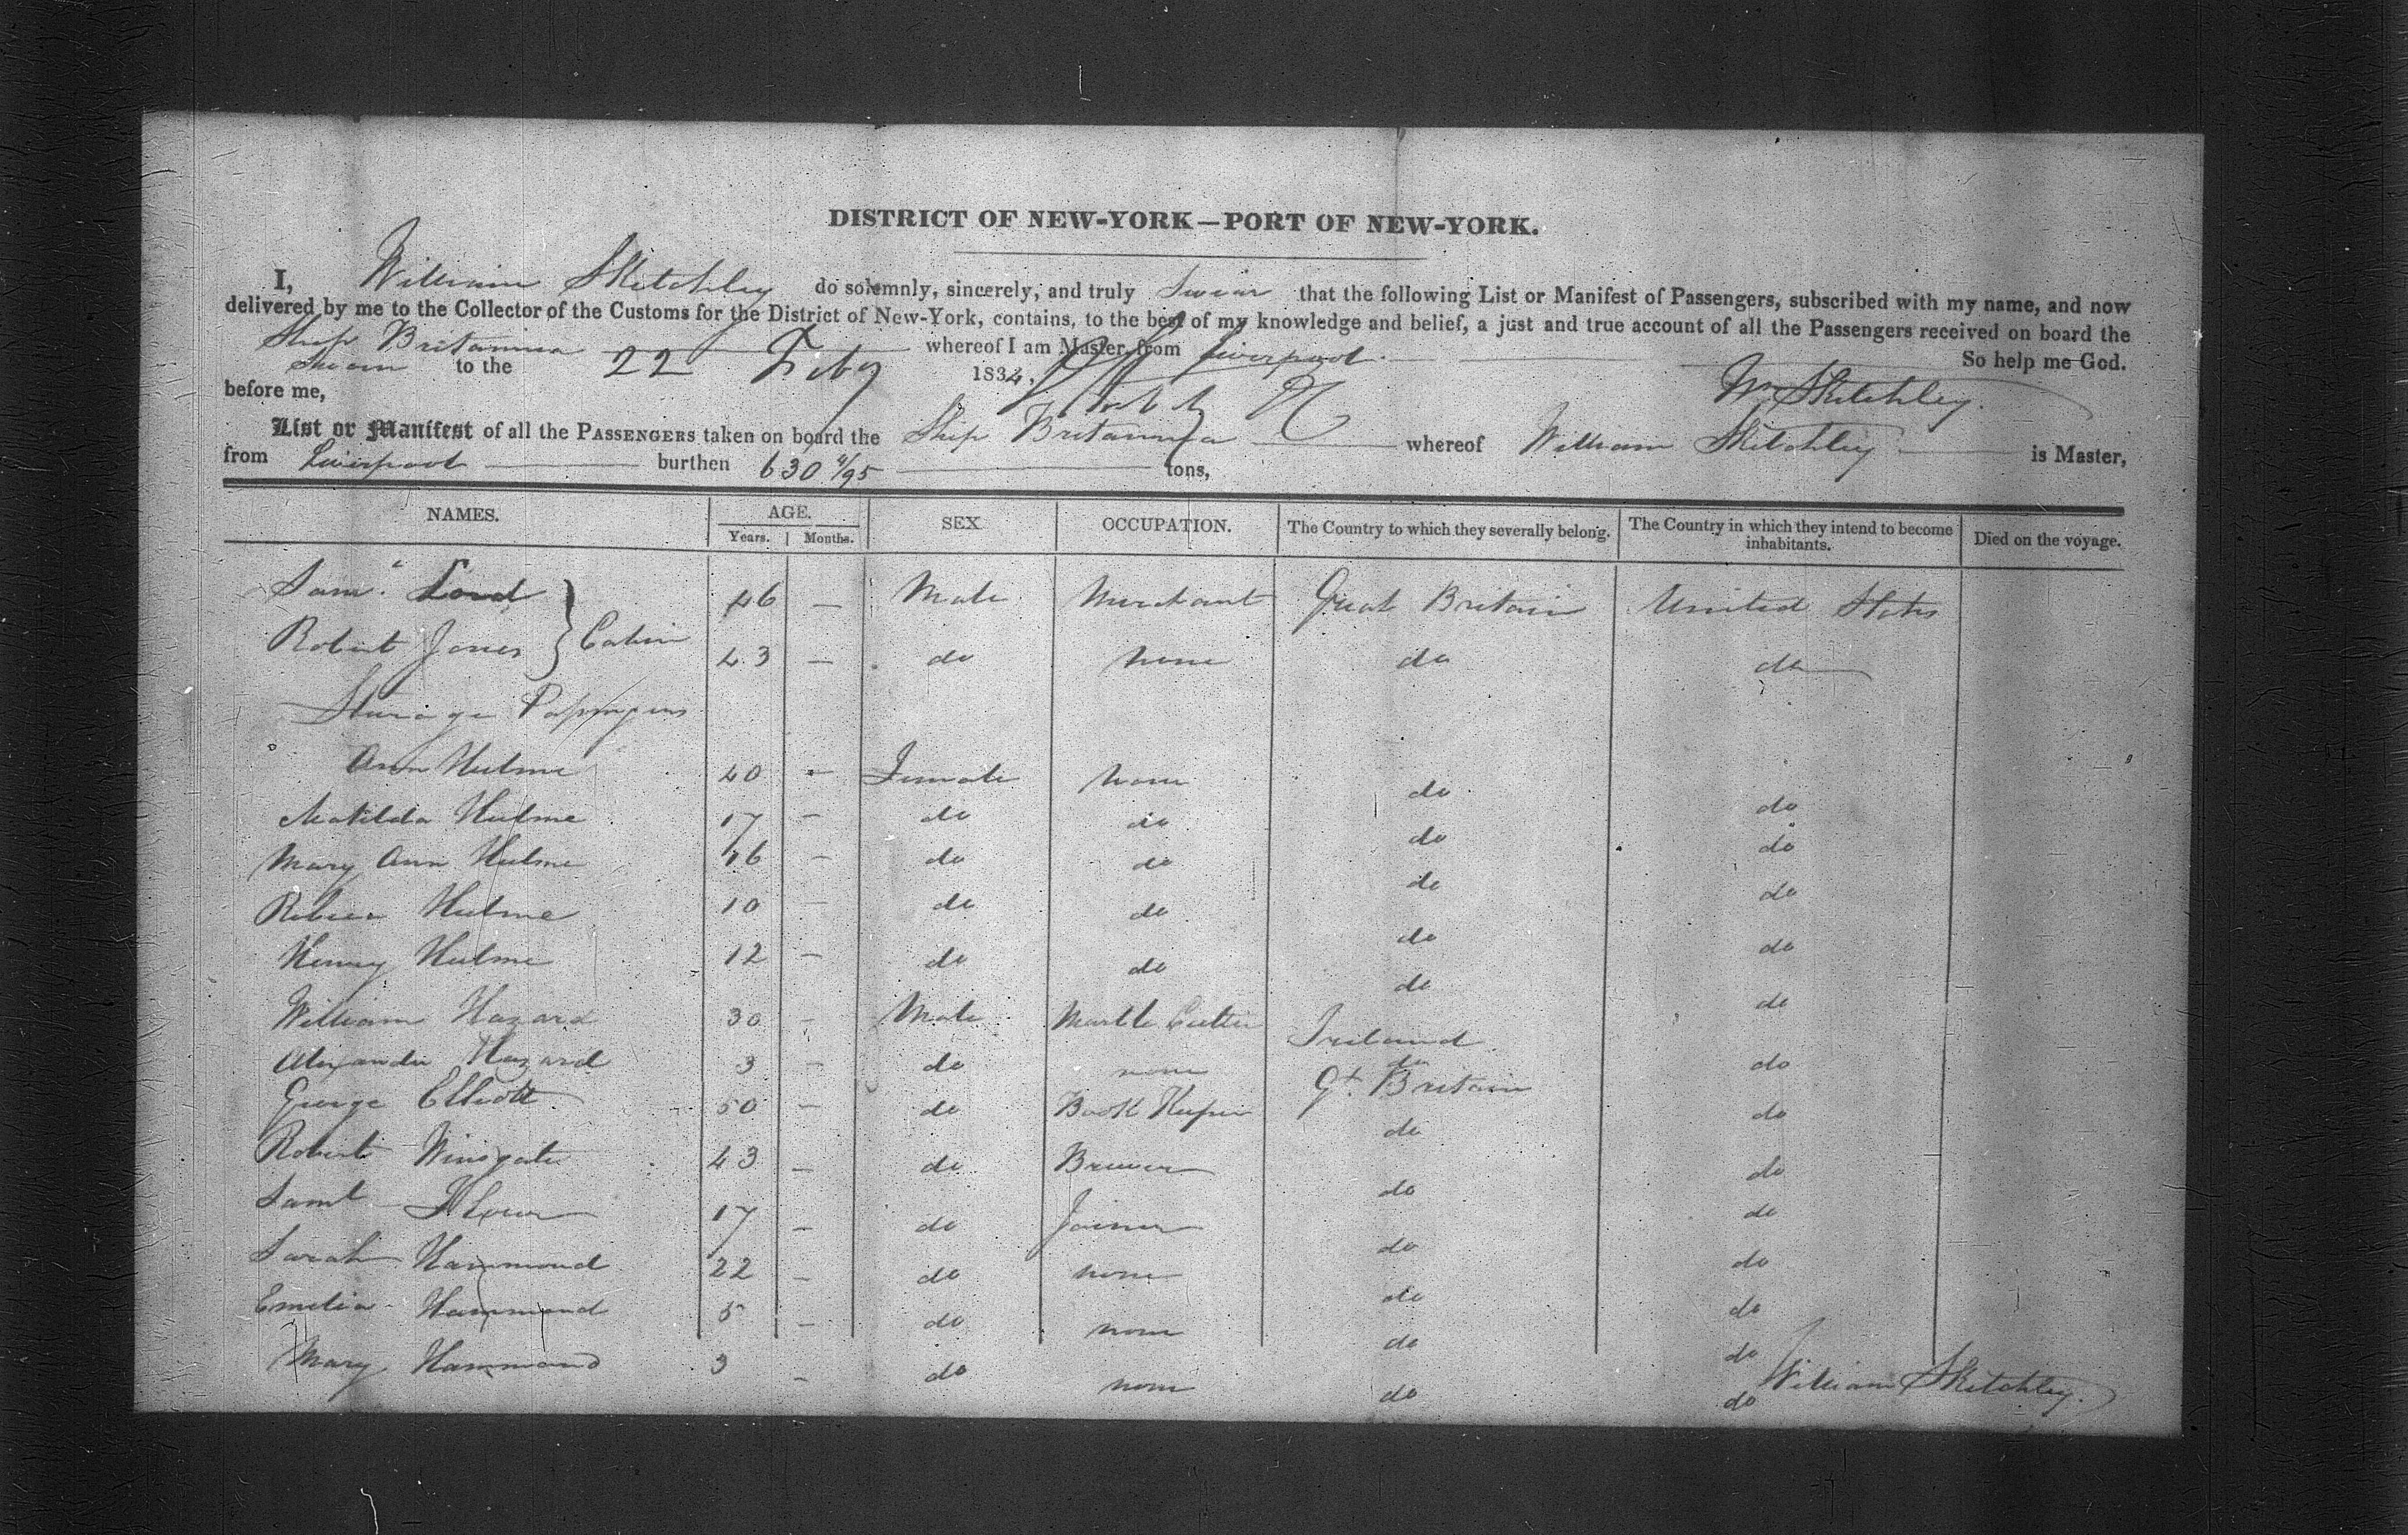 DISTRICT OF NEW-YORK—PORT OF NEW-YORK.
I, William Sketchley do solemnly, sincerely, and truly Swear that the following List or Manifest of Passengers, subscribed with my name, and now
delivered by me to the Collector of the Customs for the District of New-York, contains, to the best of my knowledge and belief, a just and true account of all the Passengers received on board the
Ship Britannia whereof I am Master, from Liverpool. So help me God.
Sworn to the 22 Feby 1834, Wm Sketchley.
before me,
List or Manifest of all the PASSENGERS taken on board the Ship Britannia whereof William Sketchley is Master,
from Liverpool burthen 630 4/95 tons,
NAMES. AGE. SEX OCCUPATION. The Country to which they severally belong. The Country in which they intend to become inhabitants. Died on the voyage.
Years. Months.
Saml Lord } Cabin 46 — Male Merchant Great Britain United States
Robert Jones 43 — do none do do
Sturage Passengers
Ann Hulme 40 — Female none do do
Matilda Hulme 17 — do do do do
Mary Ann Hulme 16 — do do do do
Hulme 10 — do do do do
Henry Hulme 12 — do do do do
William Hazard 30 — Male Marble Cutter Ireland do
Alexander Hazard 3 — do none do do
George Elliott 50 — do Book Keeper Gt. Britain do
Robert Winsgate 43 — do Brewer do do
Saml 17 — do Joiner do do
Sarah Hammond 22 — do none do do
Emelia Hammond 5 — do none do do
Mary Hammond 3 — do none do do
William Sketchley.